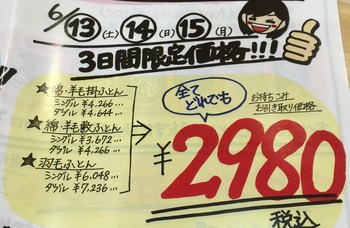 6/13(土)14(日)15(月)
3日間限定価格!!!
★綿・羊毛掛ふとん
シングル ¥4,266...
ダブル ¥4,644...
★綿・羊毛敷ふとん
シングル ¥3,672...
ダブル ¥4,266...
★羽毛ふとん
シングル ¥6,048...
ダブル ¥7,236...
全てどれでも
お持ち込み
お引き取り価格
¥2980
税込